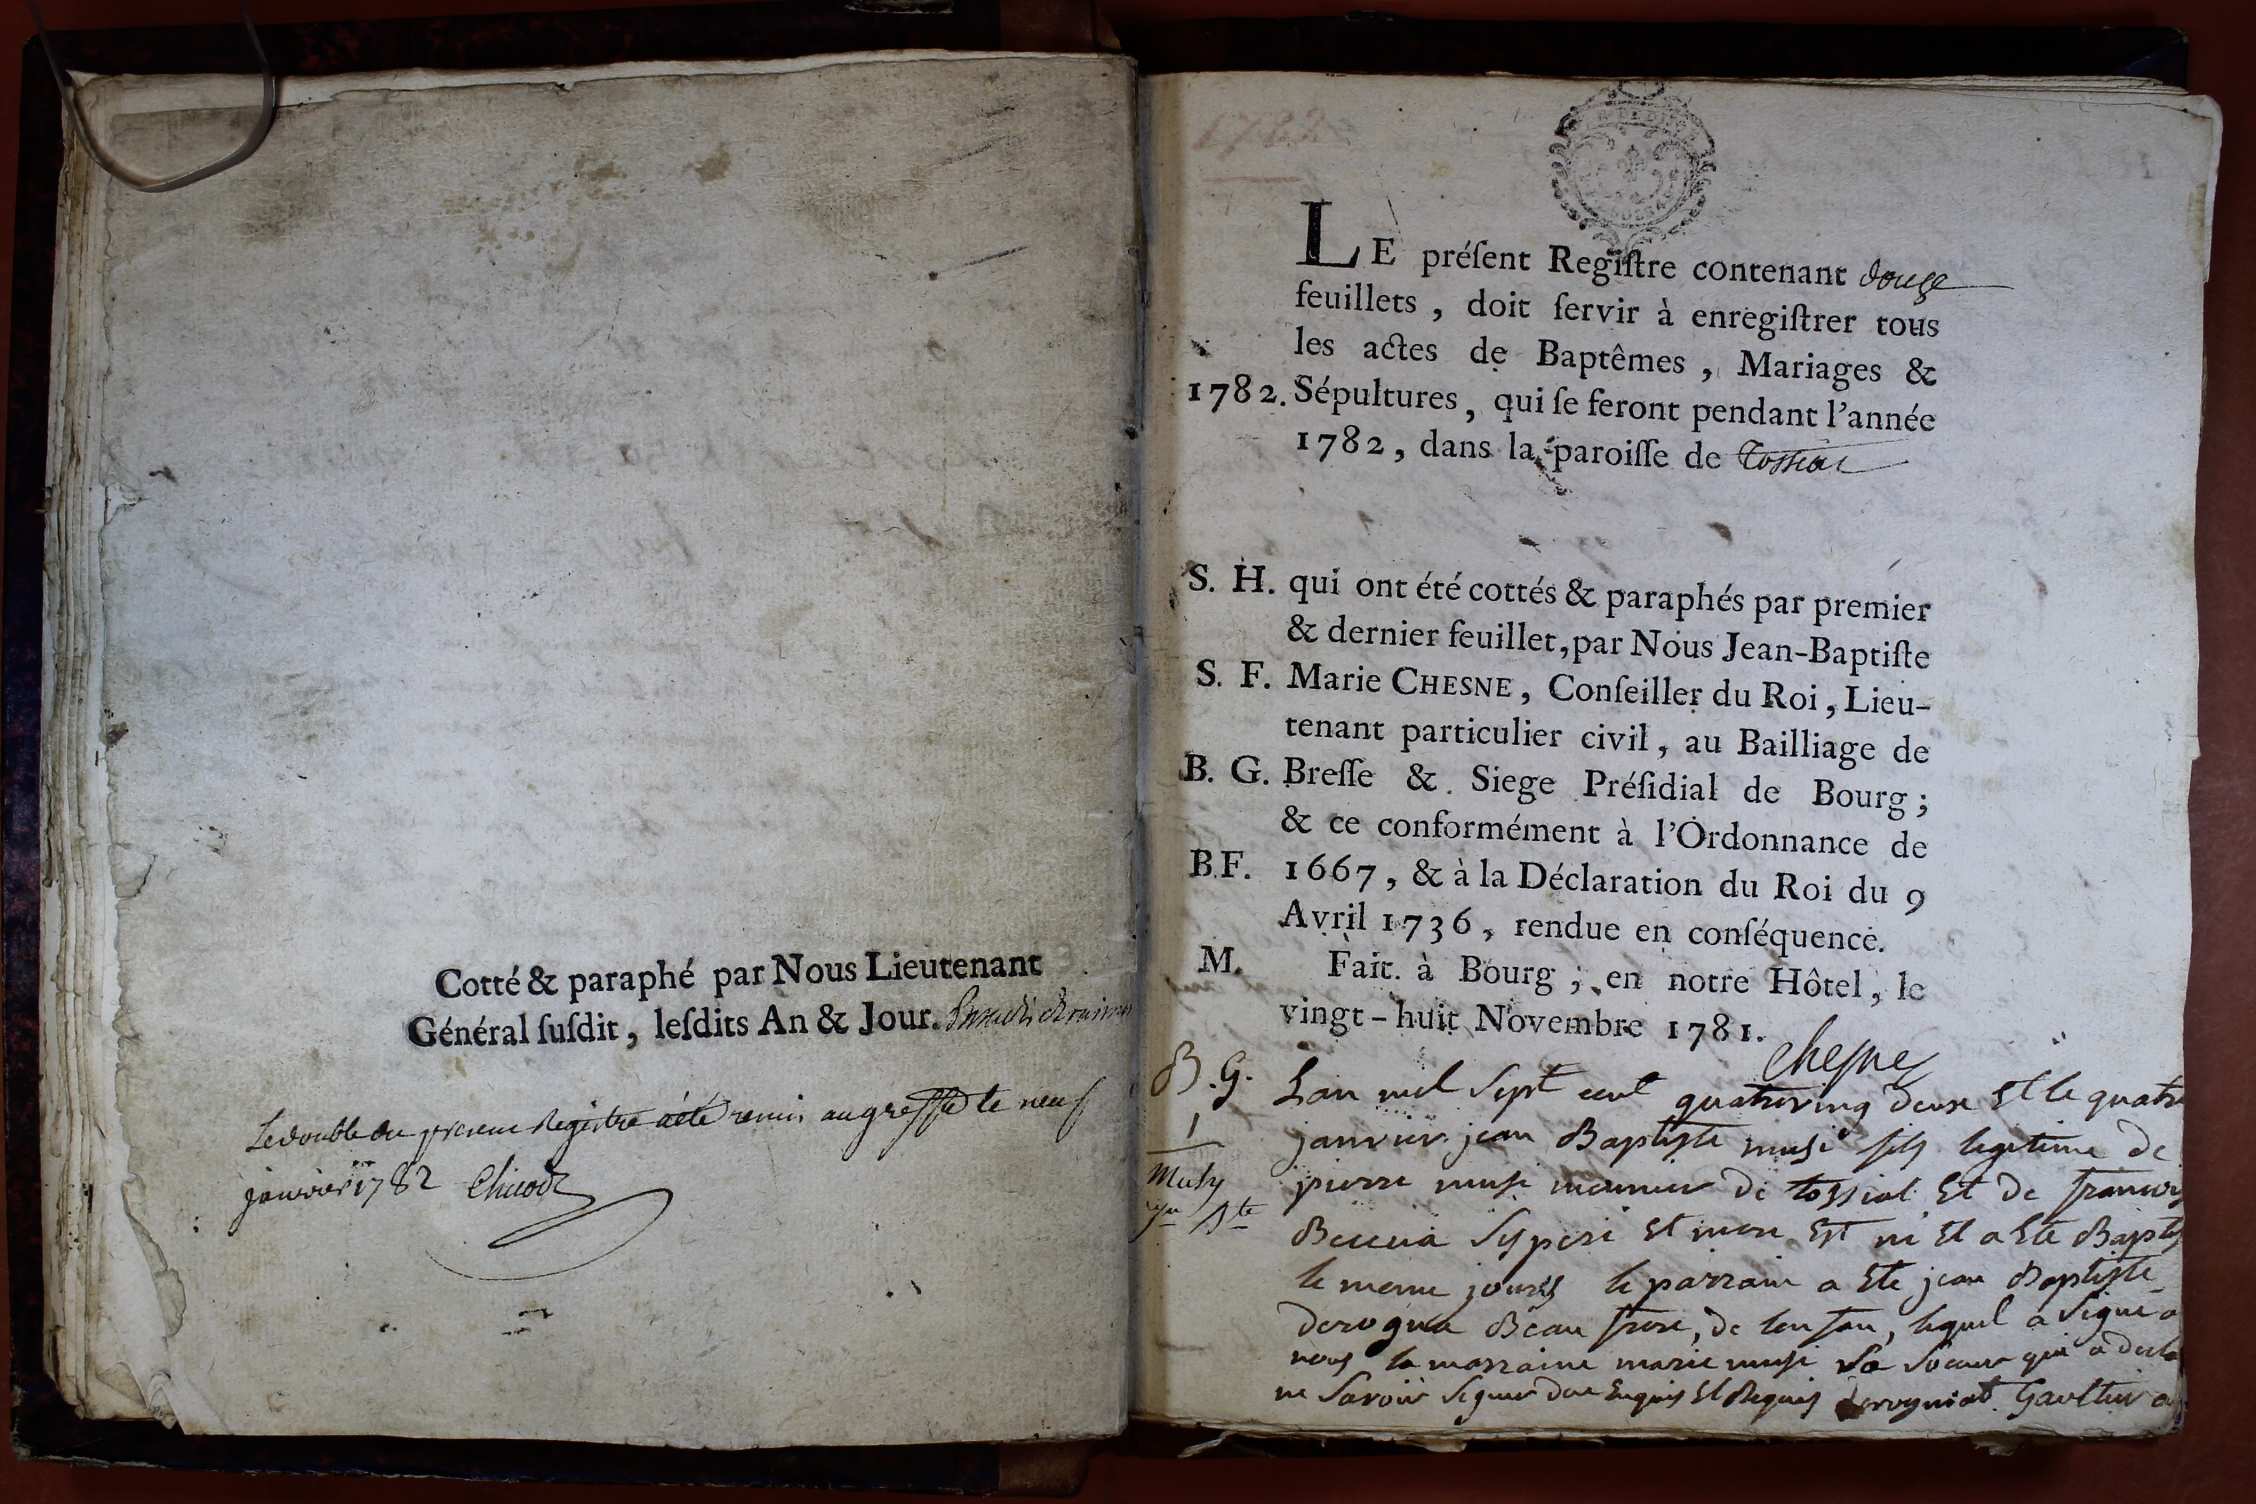 Cotté & paraphé par Nous Lieutenant
Général ſuſdit, leſdits An & Jour.
Le double du present Registre a été remis au greffe le neuf
janvier 1782
1782
LE préſent Regiſtre contenant douze
feuillets, doit ſervir à enregiſtrer tous
les actes de Baptêmes, Mariages &
1782. Sépultures, qui ſe feront pendant l'année
1782, dans la paroiſſe de Tossiat
S. H. qui ont été cottés & paraphés par premier
& dernier feuillet, par Nous Jean-Baptiſte
S. F. Marie CHESNE, Conſeiller du Roi, Lieu-
tenant particulier civil, au Bailliage de
B. G. Breſſe & Siege Préſidial de Bourg;
& ce conformément à l'Ordonnance de
B.F. 1667, & à la Déclaration du Roi du 9
Avril 1736, rendue en conſéquence.
M. Fait à Bourg; en notre Hôtel, le
vingt-huit Novembre 1781.
Chesne
B.G. Lan mil sept cent quatreving deux et le quatre
1 janvier jean Baptiste musi fils legitime de
Musy pierre musi meunier de tossiat et de
jn Bte sy pere et mere est né et a ete Baptis
le meme jours le parrain a ete jean Baptiste
derognia Beau frere, de lenfan, lequel a signé a
nous la marraine marie musi sa soeur qui a decla
ne savoir signer de ce enquis et Requis derogniat Gaultier